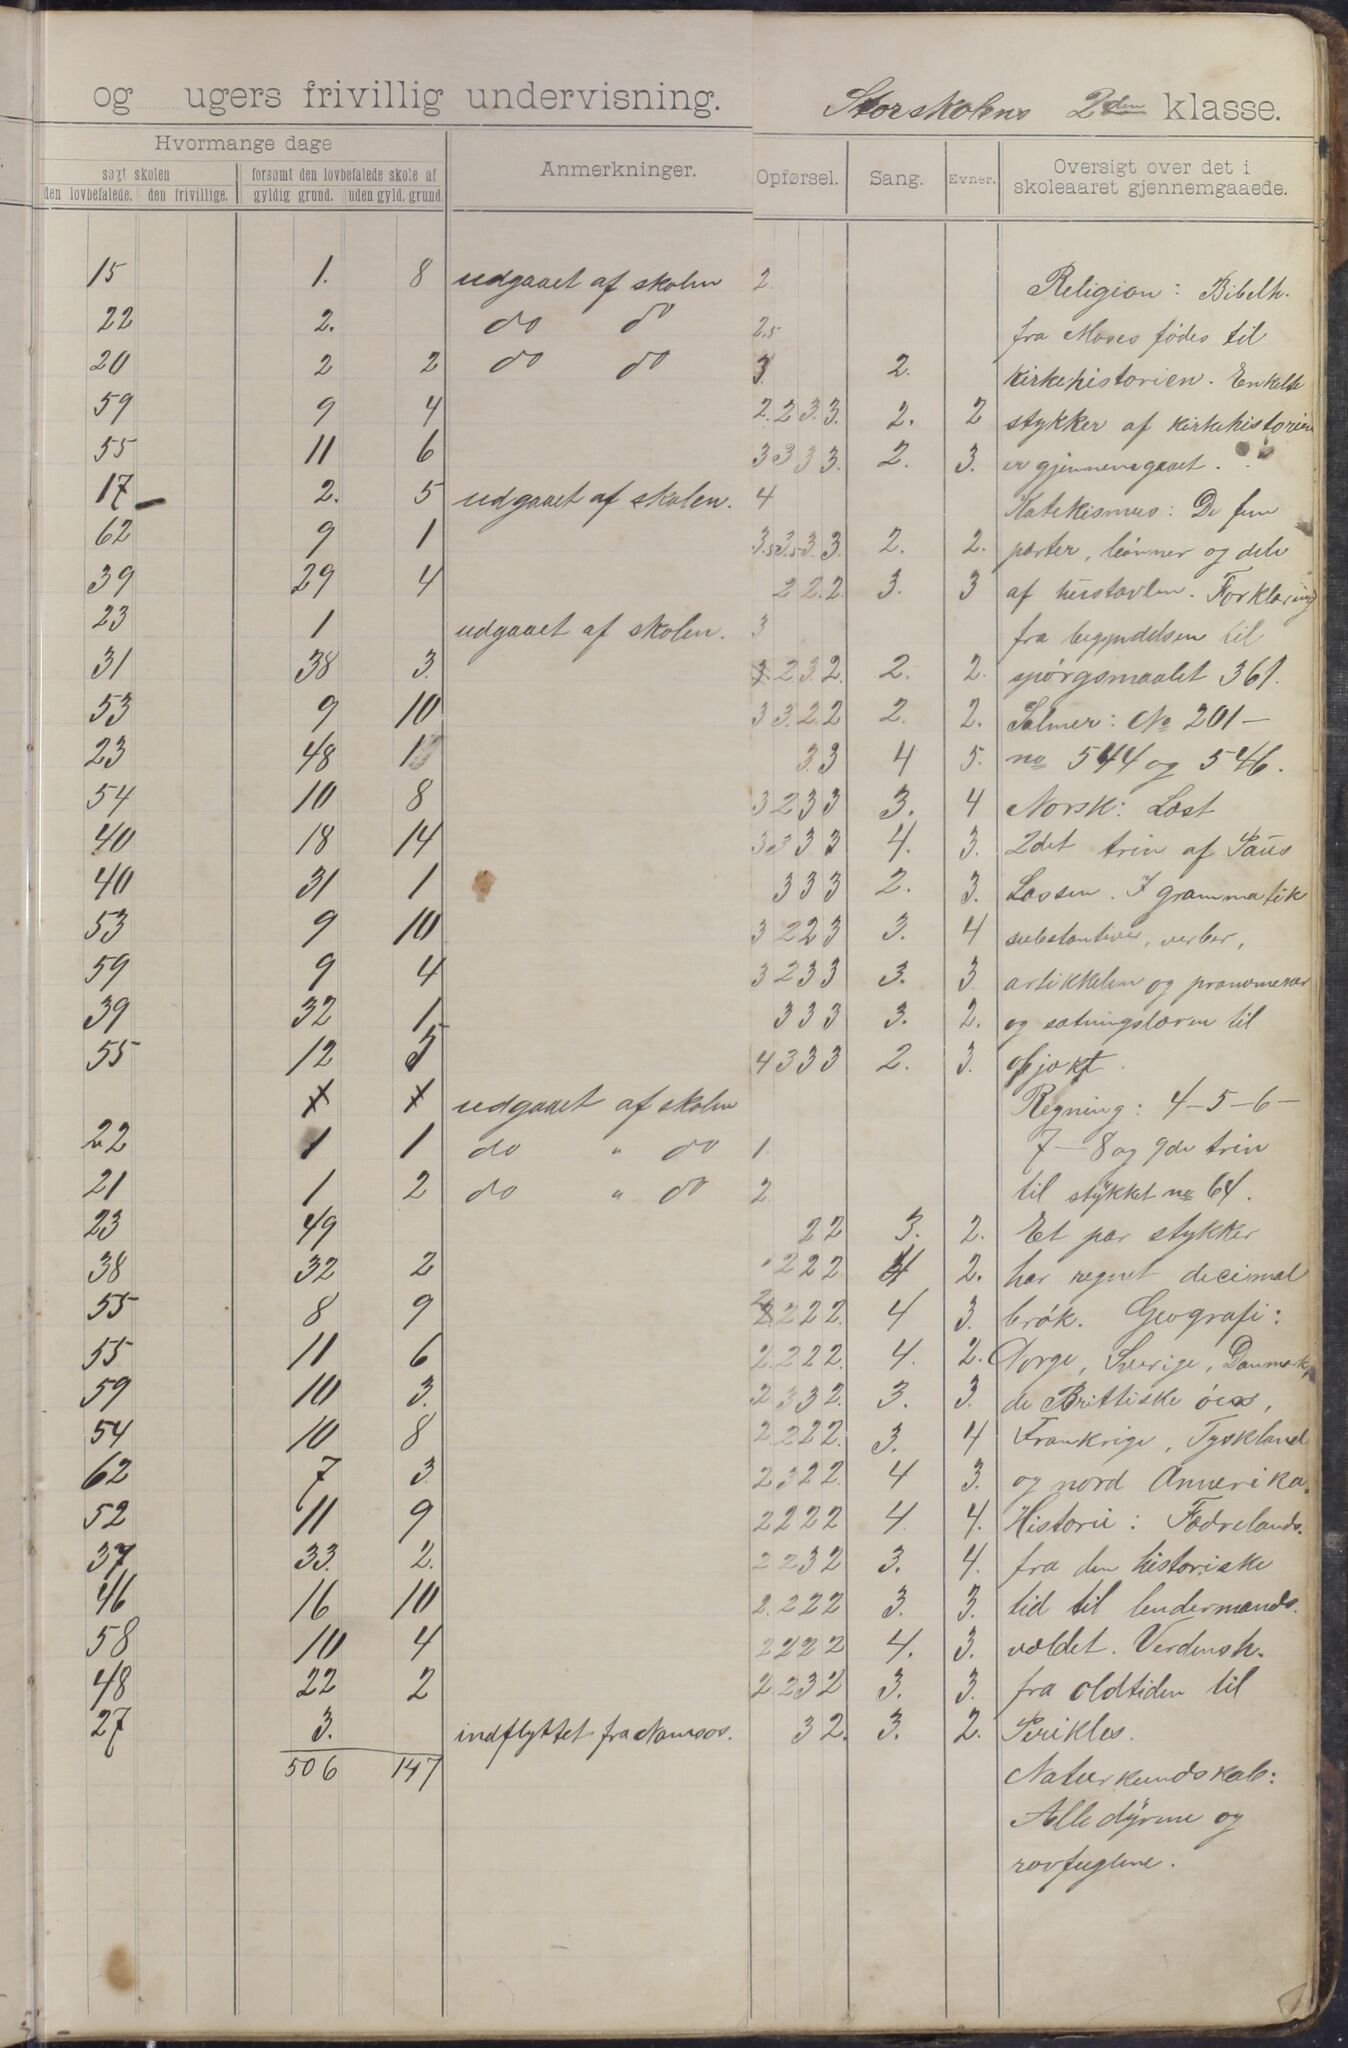 og ugers frivillig undervisning. Storskolens 2den klasse.
Hvormange dage
søgt skolen forsømt den lovbefalede skole af Anmerkninger. Opførsel. Sang. Evner. Oversigt over det i
den lovbefalede. den frivillige. gyldig grund. uden gyld. grund. skoleaaret gjennemgaaede.
15 1. 8 udgaaet af skolen 2. Religion: Bibelh.
22 2. do do 2.5 fra Moses fødes til
20 2 2 do do 3. 2. kirkehistorien. Enkelte
59 9 4 2. 2 3. 3. 2. 2 stykker af kirkehistorien
55 11 6 3 3 3 3. 2. 3. er gjennemgaaet.
17 2. 5 udgaaet af skolen. 4 Katekismus: De fem
62 9 1 3.5 3.5 3. 3. 2. 2. parter, bønner og dele
39 29 4 2 2. 2. 3. 3 af hustavlen. Forklaring
23 1 udgaaet af skolen. 3 fra begyndelsen til
31 38 3. 3 2 3. 2. 2. 2. spørgsmaalet 361.
53 9 10 3 3. 2. 2 2. 2. Salmer: No 201 –
23 48 1 3. 3 4 5. no 544 og 546.
54 10 8 3 2 3 3 3. 4 Norsk: Læst
40 18 14 3 3 3 3 4. 3. 2det trin af Paus
40 31 1 3 3 3 2. 3. Lassen. I grammatik
53 9 10 3 2 2 3 3. 4 substantiver, verber,
59 9 4 3 2 3 3 3. 3 artikkelen og pronomener
39 32 1 3 3 3 3. 2. og sætningslæren til
55 12 5 4 3 3 3 2. 3. objekt.
udgaaet af skolen Regning: 4 – 5 – 6 –
22 1 1 do " do 1. 7 – 8 og 9de trin
21 1 2 do " do 2. til stykket no 64.
23 49 2 2 3. 2. Et par stykker
38 32 2 2 2 2 4 2. har regnet decimal
55 8 9 2 2 2 2. 4 3. brøk. Geografi:
55 11 6 2. 2 2 2. 4. 2. Norge, Sverige, Danmark,
59 10 3. 2 3 3 2. 3. 3. de Brittiske øer,
54 10 8 2. 2 2 2. 3. 4 Frankrige, Tyskland
62 7 3. 2 3 2 2 4 3. og nord Amerika.
52 11 9 2 2 2 2 4 4. Historie: Fædrelands.
37 33. 2. 2 2 3 2 3. 4. fra den historiske
46 16 10 2. 2 2 2 3. 3. tid til lendermands.
58 10 4 2 2 2 2 4. 3. vældet. Verdensh.
48 22 2 2 2 3 2 3. 3. fra oldtiden til
27 3. indflyttet fra Namsos. 3 2. 3. 2. Perikles.
506 147 Naturkundskab:
Alle dyrene og
rovfuglene.